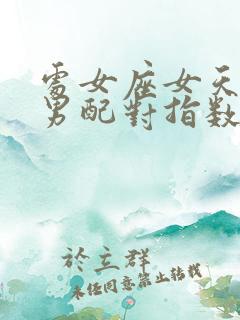 處女座女天
男配對指數
於立群
未經同意禁止轉載